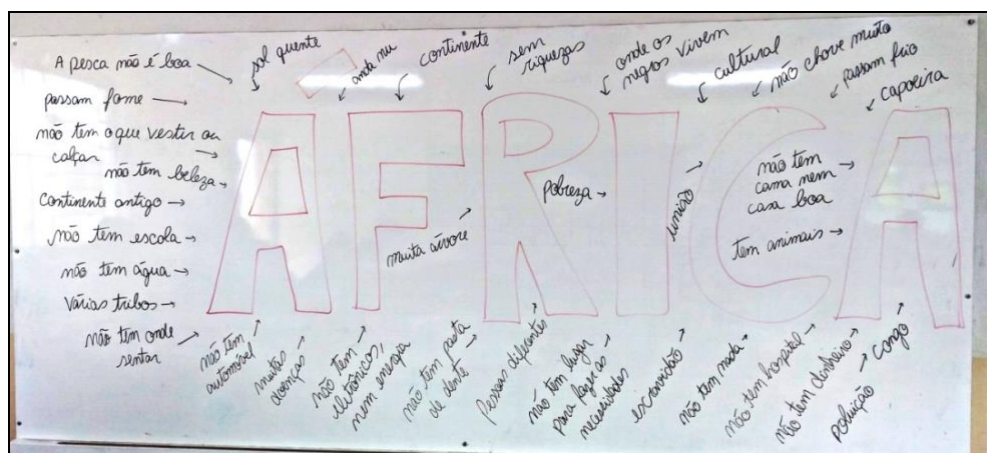 A pesca não é boa
passam fome
não tem o que vestir ou
calçar
não tem beleza
continente antigo
não tem escola
não tem água
várias tribos
não tem onde
sentar
sol quente
anda nu
continente
sem
riquezas
onde os
negros vivem
cultural
não chove muito
passam frio
capoeira
ÁFRICA
muita árvore
pobreza
união
não tem
cama nem
casa boa
tem animais
não tem
automóvel
muitas
doenças
não tem
eletrônicos,
nem energia
não tem pasta
de dente
Pessoas diferentes
não tem lugar
para fazer as
necessidades
escravidão
não tem nada
não tem hospital
não tem dinheiro
poluição
congo